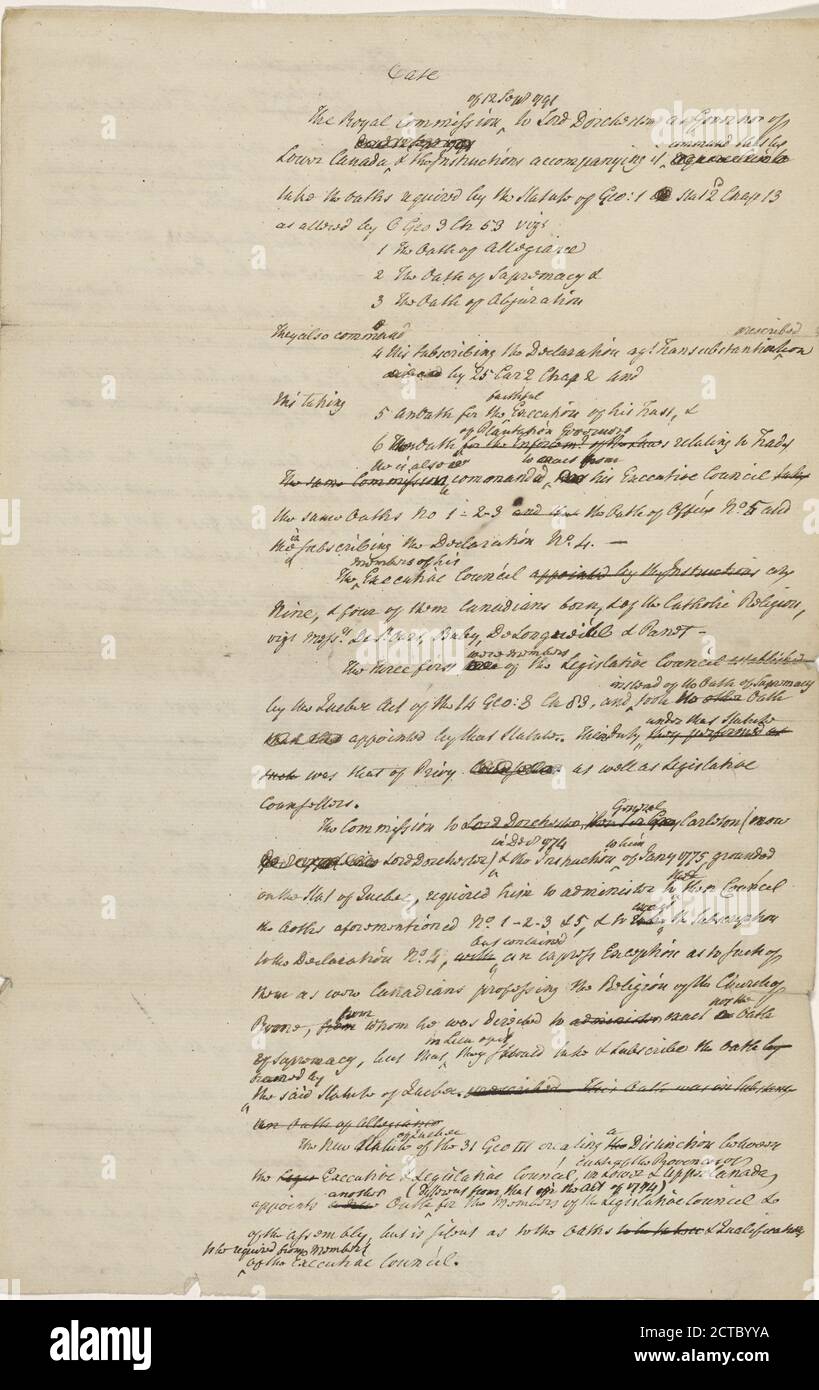 Case
of 12 Sept 1791
The Royal Commission to Lord Dorchester as Governor of
command this his
Lower Canada & the Instructions accompanying it
take the Oaths required by the Statute of Geo: 1 Stat 2d Chap 13
as altered by 6 Geo 3 Ch 53 vizt
1 The Oath of Allegiance
2 The Oath of Supremacy &
3 The Oath of Abjuration
They also command
prescribed
4 His subscribing the Declaration agt. Transubstantiation
by 25 Car 2 Chap 2 and
His taking
faithful
5 an Oath for the Execution of his Trust, &
of Plantation Governors
6 The Oath for the Inforcemt. of the Laws relating to Trade
He is also to exact from
The same Commission commanded his Executive Council take
the same Oaths No 1-2-3 and the Oath of Office No. 5 and
the subscribing the Declaration No. 4. —
members of his
The Executive Council appointed by the Instructions are
Nine, & four of them Canadians born, & of the Catholic Religion,
vizt Messrs. Baby, De Longueuil & Panet —
were members
The three first of the Legislative Council established
instead of the Oath of Supremacy
by the Quebec Act of the 14 Geo: 3 Ch 83, and took the Oath
under that Statute
appointed by that Statute. Their duty they performed as
such was that of Privy Counsellors as well as Legislative
Counsellors.
General
The Commission to Lord Dorchester, Carleton (now
in Decr 1774 to him
Lord Dorchester) & the Instruction of Jany 1775, grounded
that
on the Stat of Quebec, required him to administer to Council
exact
the Oaths aforementioned No. 1-2-3 & 5, & to the Subscription
but contained
to the Declaration No. 4, with an express Exception as to such of
them as were Canadians professing the Religion of the Church of
from not the
Rome, from whom he was directed to administer exact Oath
in Lieu of it
of Supremacy, but that they should take & subscribe the Oath by
framed by
the said Statute of Quebec. prescribed This Oath was in Substance
an Oath of Allegiance
of Quebec a
The New Statute of the 31 Geo III creating the Distinction between
of the Provinces of
the Executive & Legislative Council, in Lower & Upper Canada,
another (different from that in the Act of 1774)
appoints a new Oath for the Members of the Legislative Council &
of the Assembly, but is silent as to the Oaths to be taken & Qualifications
to be required from Members
of the Executive Council.
alamy
Image ID: 2CTBYYA
www.alamy.com